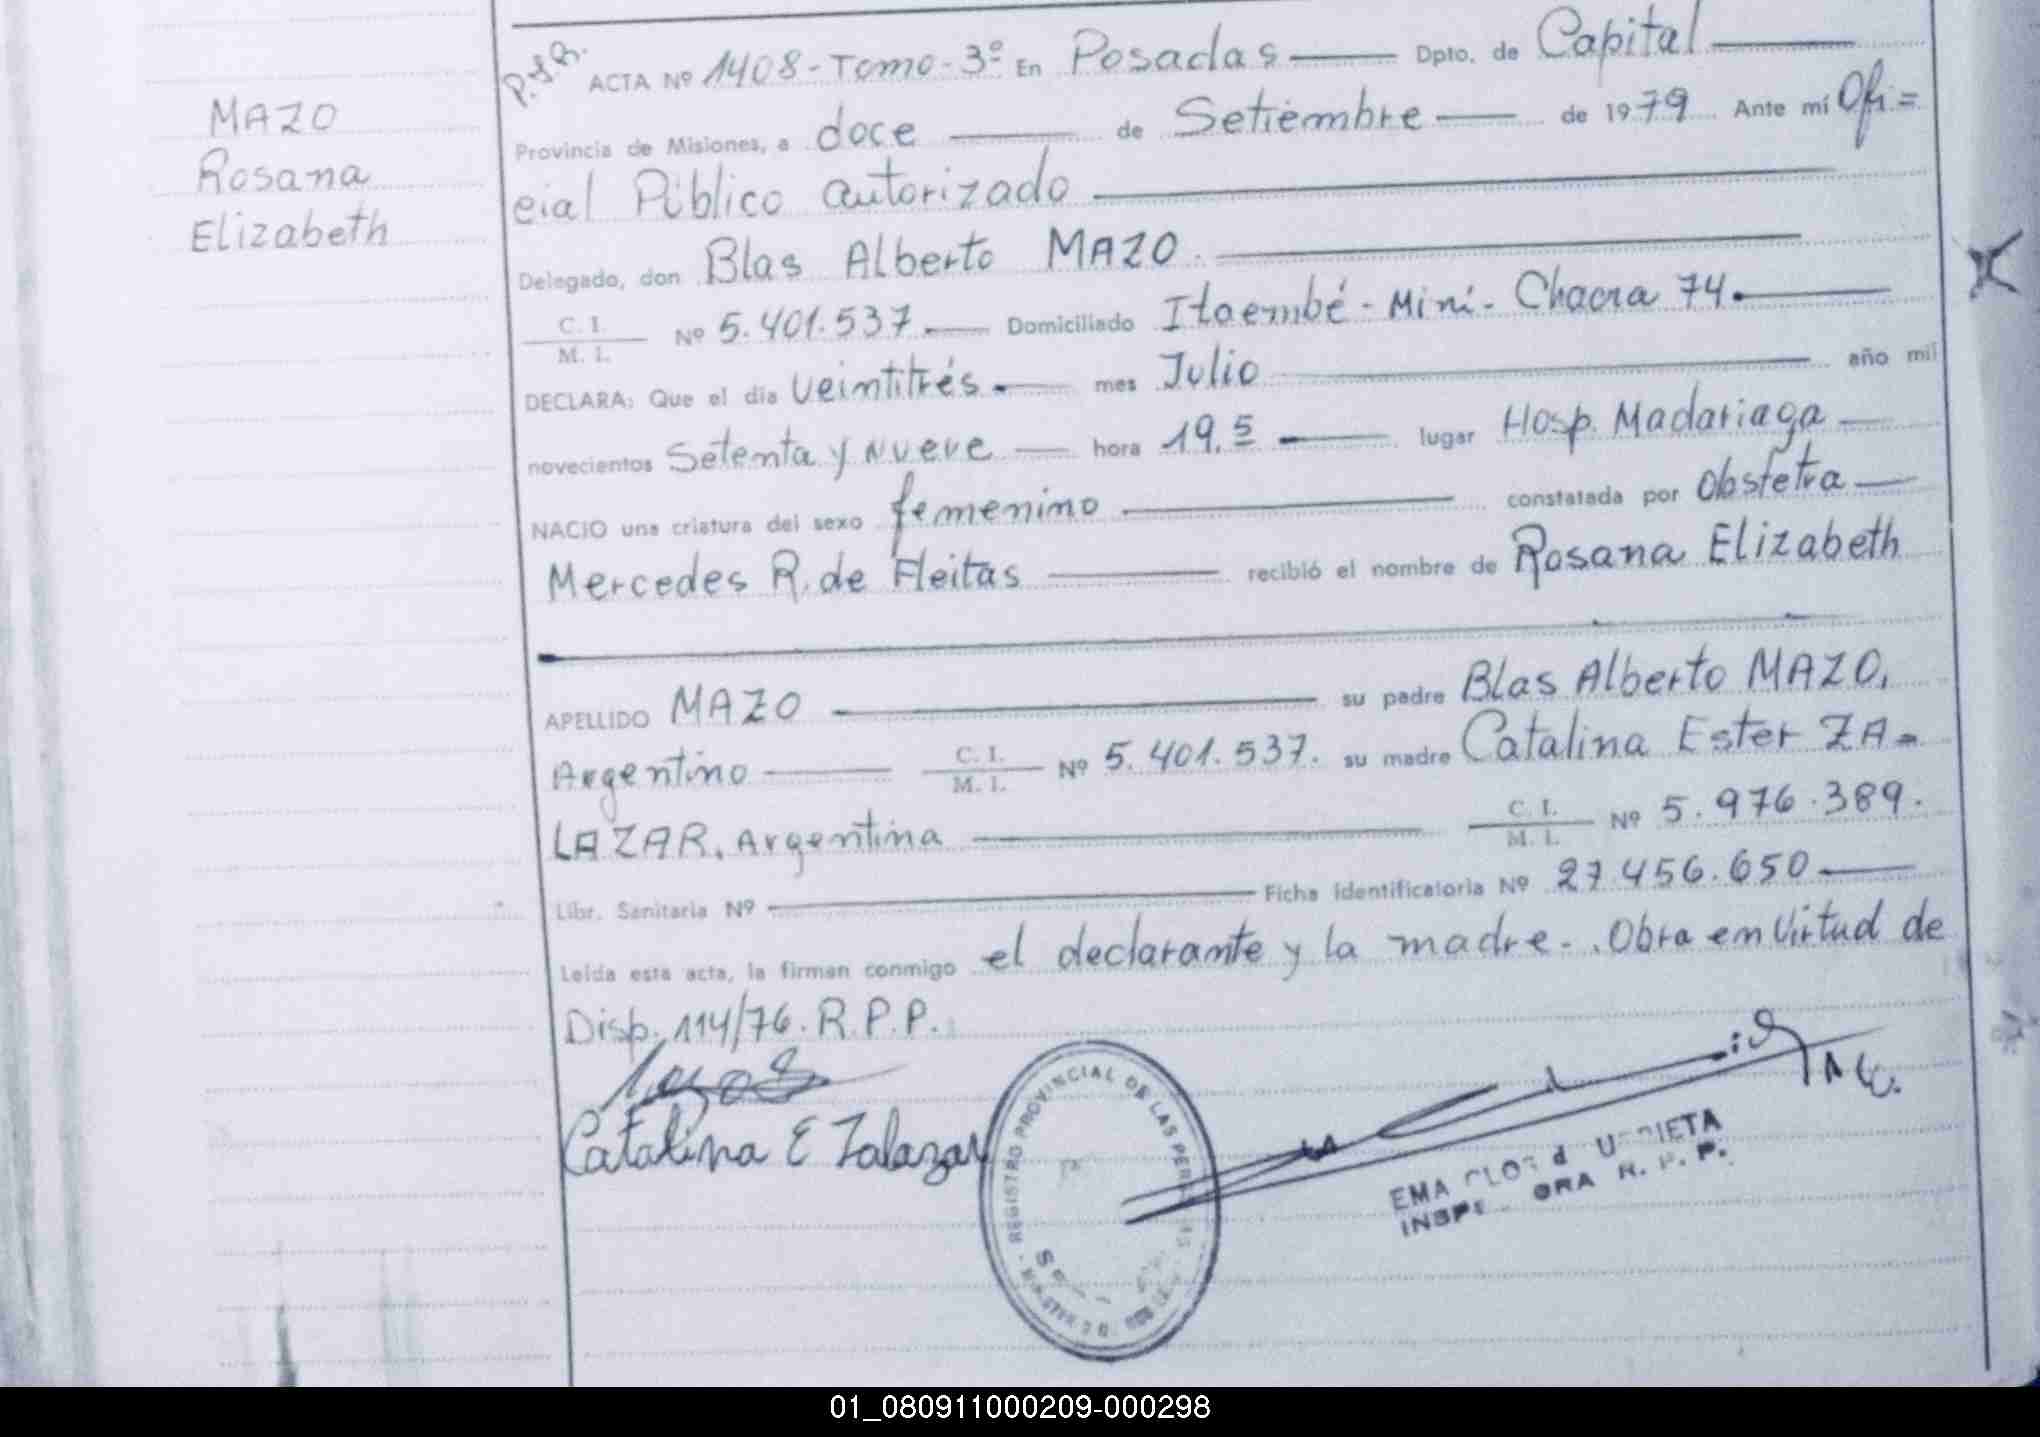 MAZO
Rosana
Elizabeth
P.J.R.
ACTA Nº 1408-Tomo-3º En Posadas Dpto. de Capital
Provincia de Misiones, a doce de Setiembre de 1979 Ante mí Ofi=
cial Público autorizado
Delegado, don Blas Alberto MAZO.
C. I. / M. I. Nº 5.401.537. Domiciliado Itaembé-Miní-Chacra 74.
DECLARA: Que el día veintitrés mes Julio año mil
novecientos Setenta y Nueve hora 19.5 lugar Hosp. Madariaga
NACIO una criatura del sexo femenino constatada por Obstetra
Mercedes R. de Fleitas recibió el nombre de Rosana Elizabeth
APELLIDO MAZO su padre Blas Alberto MAZO,
Argentino C. I. / M. I. Nº 5.401.537. su madre Catalina Ester ZA-
LAZAR, Argentina C. I. / M. I. Nº 5.976.389.
Libr. Sanitaria Nº Ficha identificatoria Nº 27.456.650
Leída esta acta, la firman conmigo el declarante y la madre-. Obra en Virtud de
Disp. 114/76. R.P.P.
Catalina E Zalazar
REGISTRO PROVINCIAL DE LAS PERS
EMA
R. P. P.
01_080911000209-000298